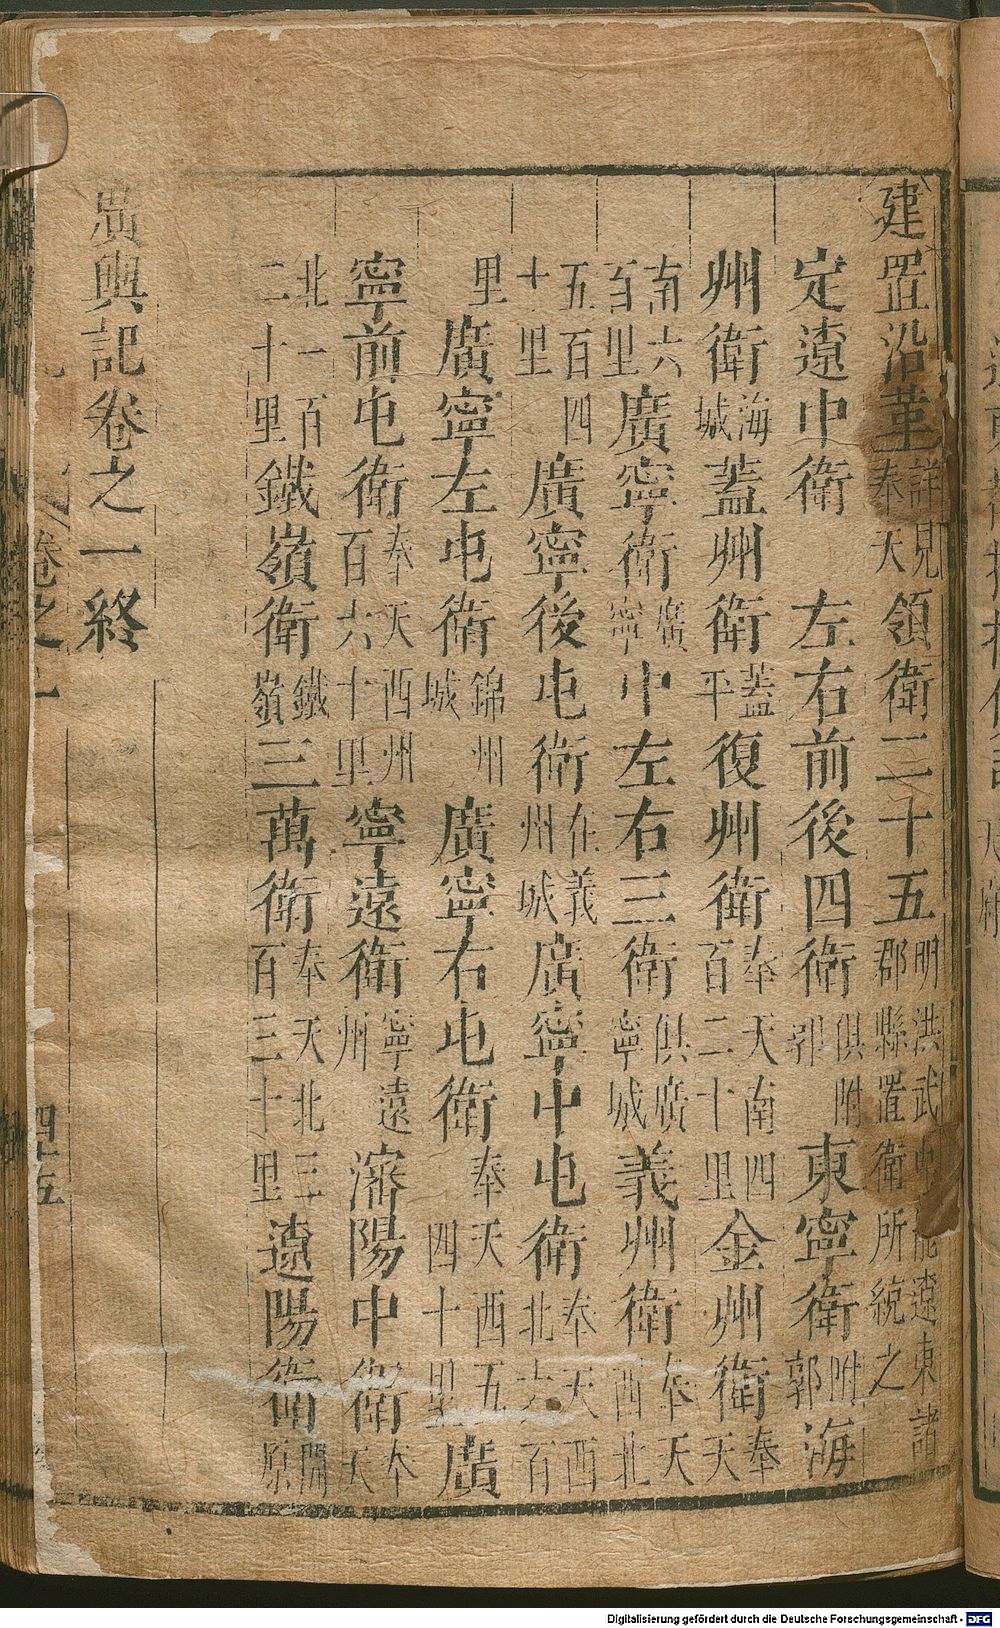 建置沿革詳見奉天領衛二十五明洪武中能遼東諸郡縣置衛所統之
定遼中衛 左右前後四衛俱附郭 東寧衛附郭海
州衛海城蓋州衛蓋平復州衛奉天南四百二十里金州衛奉天
南六百里廣寧衛廣寧中左右三衛俱廣寧城義州衛奉天西北
五百四十里廣寧後屯衛在義州城廣寧中屯衛奉天西北六百
里廣寧左屯衛錦州城 廣寧右屯衛奉天西五四十里廣
寧前屯衛奉天西州百六十里寧遠衛寧遠州瀋陽中衛奉天
北一百二十里鐵嶺衛鐵嶺三萬衛奉天北三百三十里遼陽衛開原
廣輿記卷之一終
卷之一 四十五
Digitalisierung gefördert durch die Deutsche Forschungsgemeinschaft - DFG